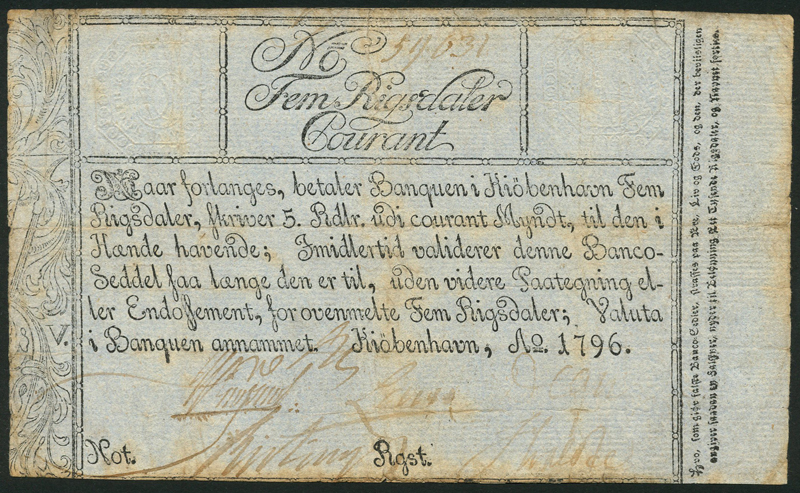 No 59631
Fem Rigsdaler
Courant
Naar forlanges, betaler Banquen i Kiöbenhavn Fem
Rigsdaler, skriver 5. Rdlr. udi courant Myndt, til den i
Hænde havende; Imidlertid validerer denne Banco-
Seddel saa længe den er til, uden videre Paategning el-
ler Endossement, for ovenmelte Fem Rigsdaler; Valuta
i Banquen annammet. Kiöbenhavn, Ao. 1796.
V.
Not. Rgst.
som giør falske Banco-Sedler, straffes paa Ære, Liv og Gods, og den, der beviisligen
angiver saadan en Falskner, nyder til Belønning Et Tusinde Rigsdaler, og Navnet forties.